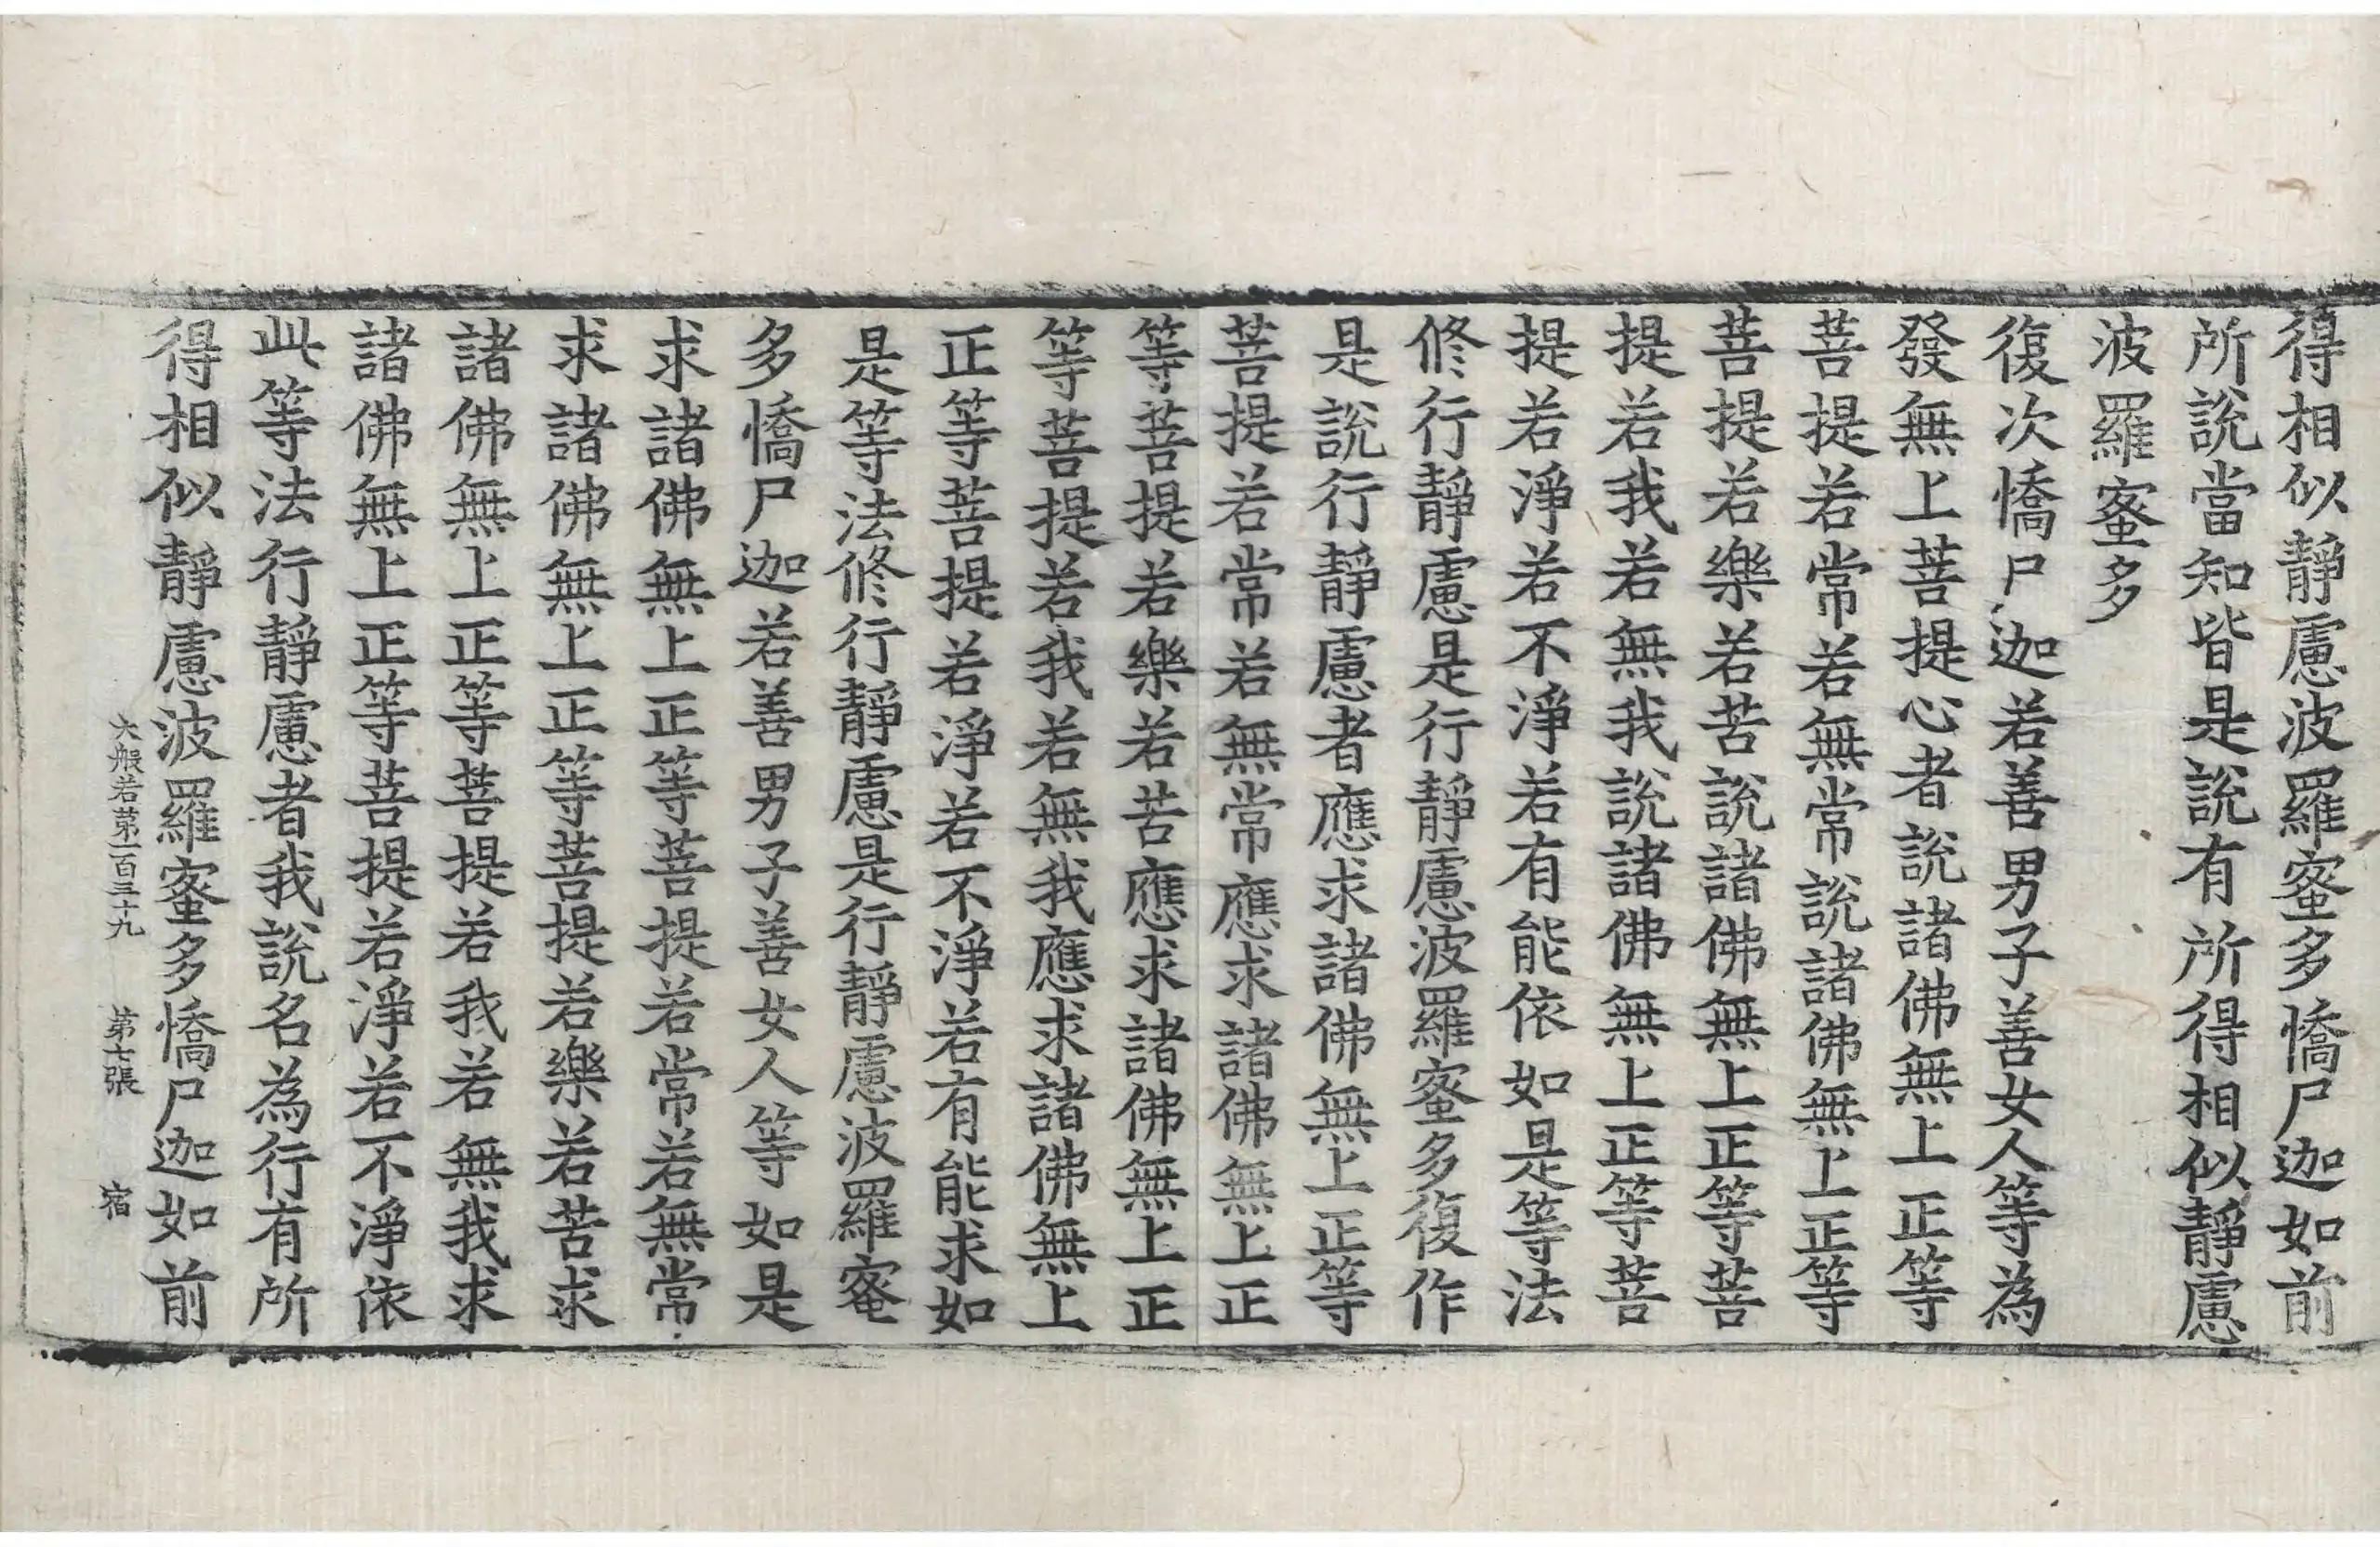 得相似靜慮波羅蜜多憍尸迦如前
所說當知皆是說有所得相似靜慮
波羅蜜多
復次憍尸迦若善男子善女人等為
發無上菩提心者說諸佛無上正等
菩提若常若無常說諸佛無上正等
菩提若樂若苦說諸佛無上正等菩
提若我若無我說諸佛無上正等菩
提若淨若不淨若有能依如是等法
修行靜慮是行靜慮波羅蜜多復作
是說行靜慮者應求諸佛無上正等
菩提若常若無常應求諸佛無上正
等菩提若樂若苦應求諸佛無上正
等菩提若我若無我應求諸佛無上
正等菩提若淨若不淨若有能求如
是等法修行靜慮是行靜慮波羅蜜
多憍尸迦若善男子善女人等如是
求諸佛無上正等菩提若常若無常
求諸佛無上正等菩提若樂若苦求
諸佛無上正等菩提若我若無我求
諸佛無上正等菩提若淨若不淨依
此等法行靜慮者我說名為行有所
得相似靜慮波羅蜜多憍尸迦如前
大般若第一百三十九 第七張 宿